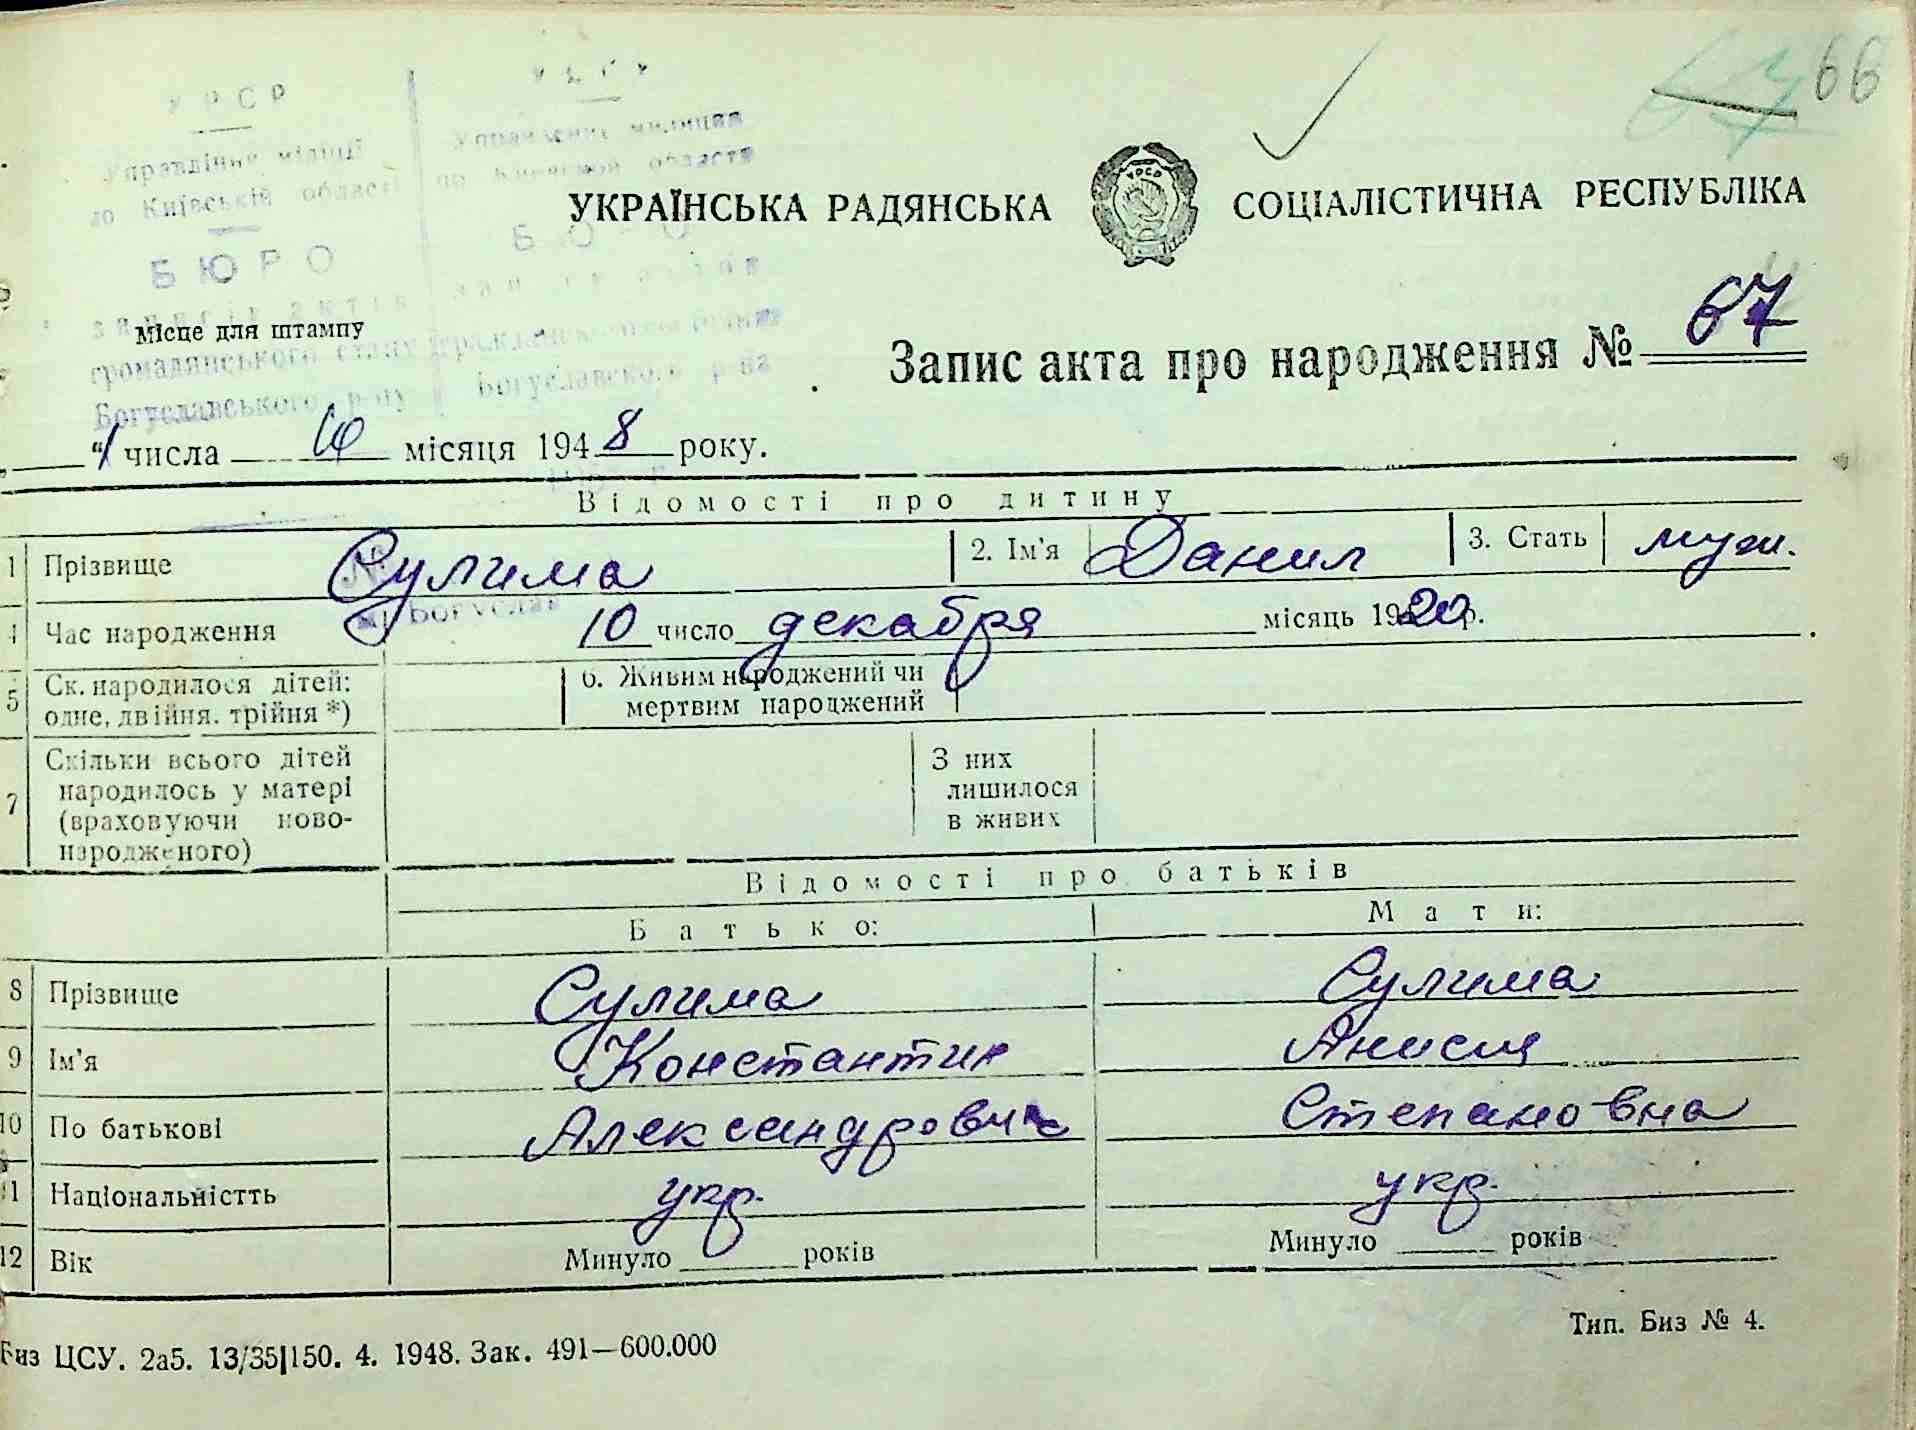 66
67
УРСР
Управління міліції
по Київській області
БЮРО
записів актів
громадянського стану
Богуславського р-ну
УССР
Управление милиции
по Киевской области
БЮРО
Богуславского р-на
УКРАЇНСЬКА РАДЯНСЬКА СОЦІАЛІСТИЧНА РЕСПУБЛІКА
Місце для штампу
Запис акта про народження № 67
числа місяця 1948 року.
Відомості про дитину
1 Прізвище Сулима 2. Ім'я Данил 3. Стать муж.
м. Богуслав
4 Час народження 10 число декабря місяць 1920 р.
5 Ск. народилося дітей: одне, двійня. трійня *) 6. Живим народжений чи мертвим народжений
7 Скільки всього дітей народилось у матері (враховуючи ново-народженого) З них лишилося в живих
Відомості про батьків
Батько: Мати:
8 Прізвище Сулима Сулима
9 Ім'я Константин Анисия
10 По батькові Александрович Степановна
11 Національністть укр. укр.
12 Вік Минуло років Минуло років
Биз ЦСУ. 2а5. 13/35|150. 4. 1948. Зак. 491—600.000 Тип. Биз № 4.